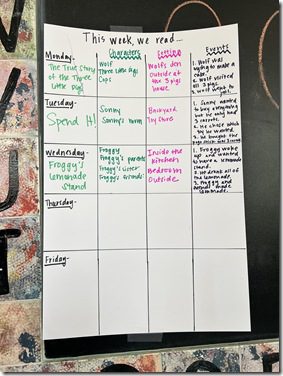 This week, we read...
Characters
Setting
Events
Monday-
The True Story
of the Three
Little Pigs!
Wolf
Three Little Pigs
Cops
Wolf's den
Outside at
the 3 pigs
house
1. Wolf was
trying to make a
cake.
2. Wolf visited
all 3 pigs
3. Wolf went to
jail!
Tuesday-
Spend It!
Sonny
Sonny's mom
Backyard
Toy Store
1. Sonny wanted
to buy everything
but he only had
3 carrots.
2. He chose which
toy he wanted.
3. He bought the
Wednesday-
Froggy's
Lemonade
Stand
Froggy
Froggy's parents
Froggy's sister
Froggy's friends
Inside the
Kitchen
Bedroom
Outside
1. Froggy woke
up and wanted
to have a lemonade
stand.
2. He drank all of
the lemonade.
3. Froggy and
made
lemonade.
Thursday-
Friday-